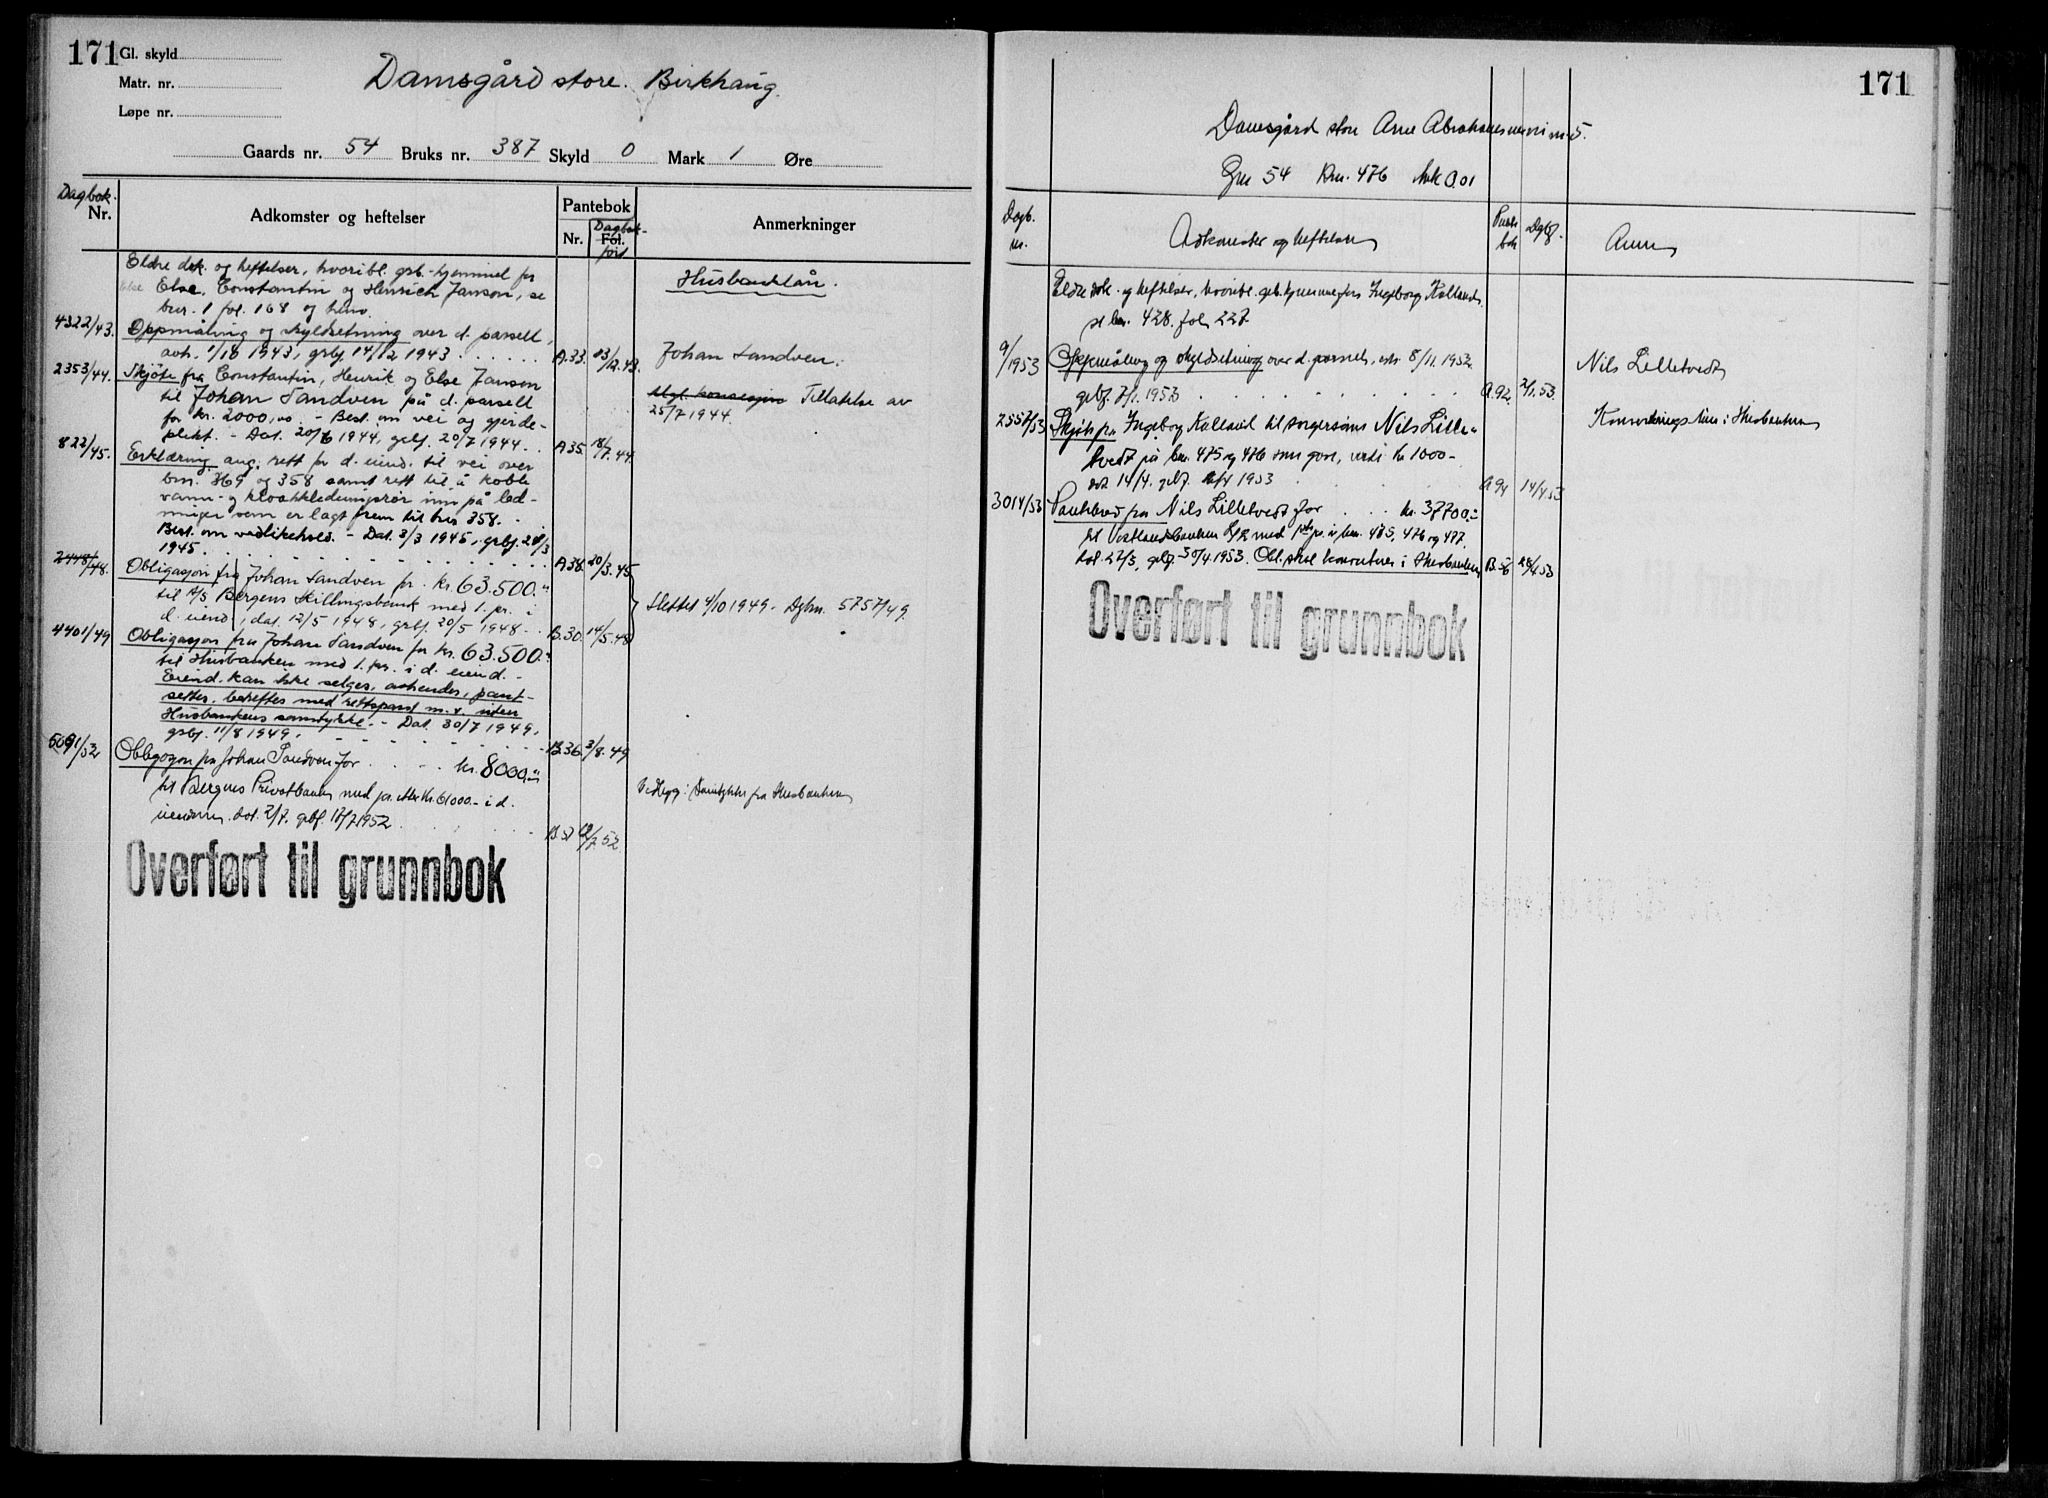 171
Gl. skyld
Matr. nr.
Løpe nr.
Damsgård store. Birkhaug.
Gaards nr. 54 Bruks nr. 387 Skyld 0 Mark 1 Øre
Dagbok. Nr.
Adkomster og heftelser
Pantebok
Nr.
Fol. Dagbok-ført
Anmerkninger
Eldre dok. og heftelser, hvoribl. grb.-hjemmel for
Else, Constantin og Henrich Janson, se
bnr. 1 fol. 168 og henv.
Husbanklån.
4322/43. Oppmåling og skyldsetning over d. parsell,
avh. 1/10 1943, grbf. 14/12 1943 . . . . . . A.33. 13/12.43. Johan Sandven.
2353/44. Skjøte fra Constantin, Henrik og Else Janson
til Johan Sandven på d. parsell
for kr. 2000,00 - Best. om vei og gjerde-
plikt. - Dat. 20/6 1944, grbf. 20/7 1944. . A.35. 18/7.44.
Mgl. konsesjon Tillatelse av
25/7 1944.
822/45. Erklæring ang. rett for d. eiend. til vei over
bnr. 369 og 358 samt rett til å koble
vann- og kloakkledningsrør inn på led-
ninger som er lagt frem til bnr 358. -
Best. om vedlikehold. - Dat. 3/3 1945, grbf. 28/3
1945. . . . . . . . . . A.38. 20/3.45
2448/48. Obligasjon fra Johan Sandven for kr. 63.500.-
til A/S Bergens Skillingsbank med 1. pr. i
d. eiend., dat. 12/5 1948, grbf. 20/5 1948. . B.30. 14/5.48
Slettet 4/10 1949. Dgbnr. 5757/49.
4401/49 Obligasjon fra Johan Sandven for kr. 63.500.-
til Husbanken med 1. pr. i d. eiend. -
Eiend. kan ikke selges, avhendes, pant-
settes, beheftes med rettspant m.v. uten
Husbankens samtykke. - Dat. 30/7 1949,
grbf. 11/8 1949. . . . . . . . B.36. 3/8.49
5091/52 Obligasjon fra Johan Sandven for . . . . kr. 8000.-
til Bergens Privatbank med pr. etter kr. 61000.- i d.
eiendom. dat. 2/7. grbf. 18/7 1952 . . . . . . 12/7.52
Vedlegg: Samtykke fra Husbanken
Overført til grunnbok
171
Damsgård store Arne Abrahamsens vei nr 5.
Gnr 54 Bnr. 476 Mk 0.01
Dagb. nr.
Adkomster og heftelser
Pante bok
Dgbf.
Anm
Eldre dok. og heftelser, hvoribl. grb.hjemmel for Ingeborg Kalland
se bnr. 428. fol. 227.
9/1953 Oppmåling og skyldsetning over d. parsell, avh. 8/11. 1952.
grbf. 7/1. 1953 . . . . . . A.92. 2/1.53.
Nils Lilletvedt
2557/53 Skjøte fra Ingeborg Kalland til sorgersønn Nils Lille-
tvedt på bnr. 475 og 476 som gave, verdi kr 1000.-
dat 14/4. grbf. 1953 . . . . . A 94 14/4.53
Konverteringslån i Husbanken
3014/53 Pantebrev fra Nils Lilletvedt for . . . kr. 37700.-
til Vestlandsbanken L/L med 1ste pr. i bnr. 475, 476 og 477.
Dat. 27/3, grbf. 30/4 1953. Obl. skal konverteres i Husbanken B.56 28/4 53
Overført til grunnbok